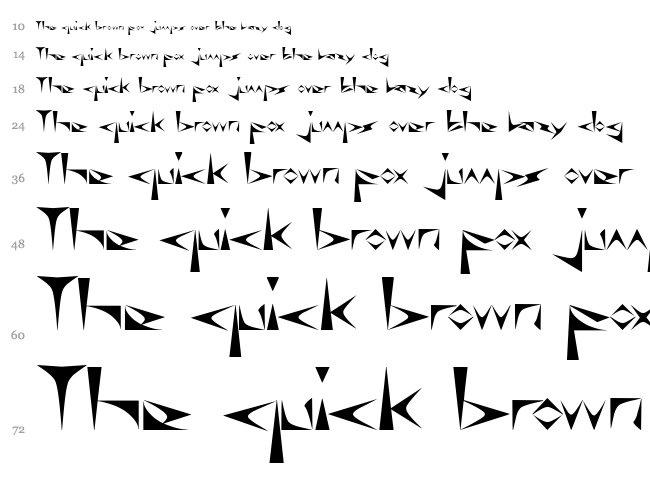 10 The quick brown fox jumps over the lazy dog
14 The quick brown fox jumps over the lazy dog
18 The quick brown fox jumps over the lazy dog
24 The quick brown fox jumps over the lazy dog
36 The quick brown fox jumps over
48 The quick brown fox jum
60 The quick brown fox
72 The quick brown